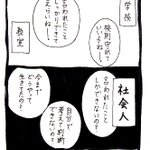 学校
規則守れて
いい子ねー
言われたこと
しっかりできて
えらいね
教室
社会人
言われたこと
しかできないの?
自分で
考えて判断
できないの?
今まで
どうやって
生きてたの?